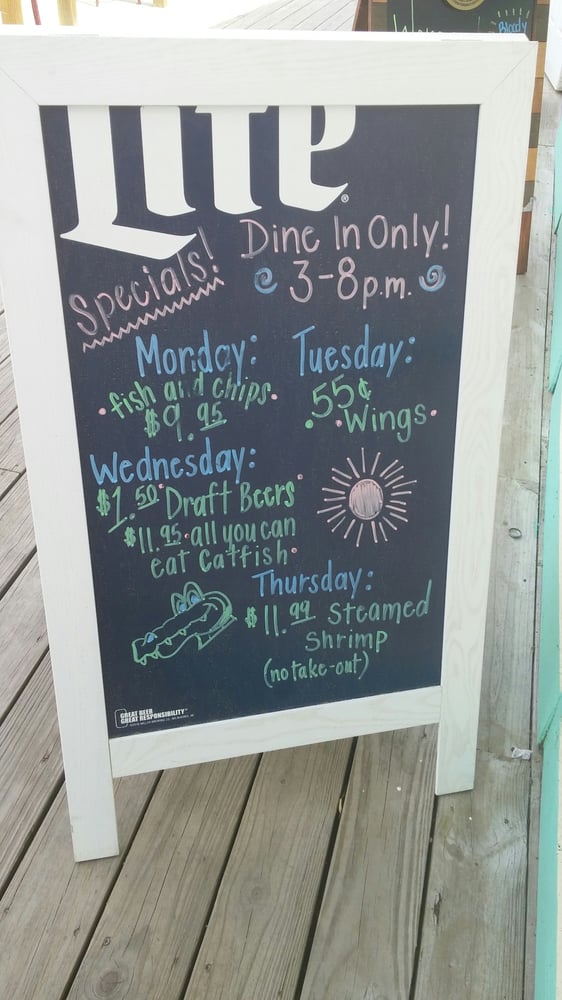 Bloody
Lite®
Specials!
Dine In Only!
3-8p.m.
Monday:
fish and chips
$9.95
Tuesday:
.55¢
Wings
Wednesday:
$1.50 Draft Beers
$11.95 all you can
eat Catfish
Thursday:
$11.99 Steamed
Shrimp
(no take-out)
GREAT BEER
GREAT RESPONSIBILITY